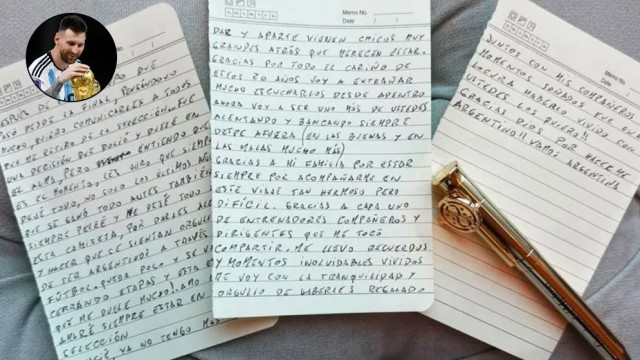 DESPUES DE
QUE
PASO DESDE LA FINAL, PENSANDOLO
MUCHO, QUIERO COMUNICARLES A TODOS
QUE ME RETIRO DE LA SELECCION. FUE
UNA DECISION QUE DOLIÓ Y DUELE EN
EL ALMA, PERO ENTIENDO QUE
ES EL MOMENTO. LES JURO QUE SIEMPRE
DEJÉ TODO, NO SOLO LOS ULTIMOS AÑOS
QUE SE GANÓ TODO ANTES TAMBIEN
SIEMPRE PELEÉ Y ME DEJÉ TODO
ESTA CAMISETA, POR DARLES ALE
Y HACER QUE SE SIENTAN ORGULL
DE SER ARGENTINOS A TRAVES
FÚTBOL. QUEDA POCO Y SE VA
CERRANDO ETAPAS Y ESTA
QUE ME DUELE MUCHO! AMO
AMARÉ SIEMPRE ESTAR EN
SELECCIÓN
YA NO TENGO MAS
Memo No.
Date / /
DAR Y APARTE VIENEN CHICOS MUY
GRANDES ATRÁS QUE MERECEN ESTAR.
GRACIAS POR TODO EL CARIÑO DE
ESTOS 20 AÑOS VOY A EXTRAÑAR
MUCHO ESCUCHARLOS DESDE ADENTRO
AHORA VOY A SER UNO MÁS DE USTEDES
ALENTANDO Y BANCANDO SIEMPRE
DESDE AFUERA (EN LAS BUENAS Y EN
LAS MALAS MUCHO MÁS)
GRACIAS A MI FAMILIA POR ESTAR
SIEMPRE POR ACOMPAÑARME EN
ESTE VIAJE TAN HERMOSO PERO
DIFÍCIL. GRACIAS A CADA UNO
DE ENTRENADORES COMPAÑEROS Y
DIRIGENTES QUE ME TOCÓ
COMPARTIR. ME LLEVO RECUERDOS
Y MOMENTOS INOLVIDABLES VIVIDOS
ME VOY CON LA TRANQUILIDAD Y
ORGULLO DE HABERLES REGALADO
Memo No.
Date / /
JUNTOS CON MIS COMPAÑEROS
MOMENTOS SOÑADOS FUE
LOCURA HABERLO VIVIDO CON
USTEDES LOS QUIERO!!
GRACIAS DIOS POR HACERME
ARGENTINO!! VAMOS ARGENTINA